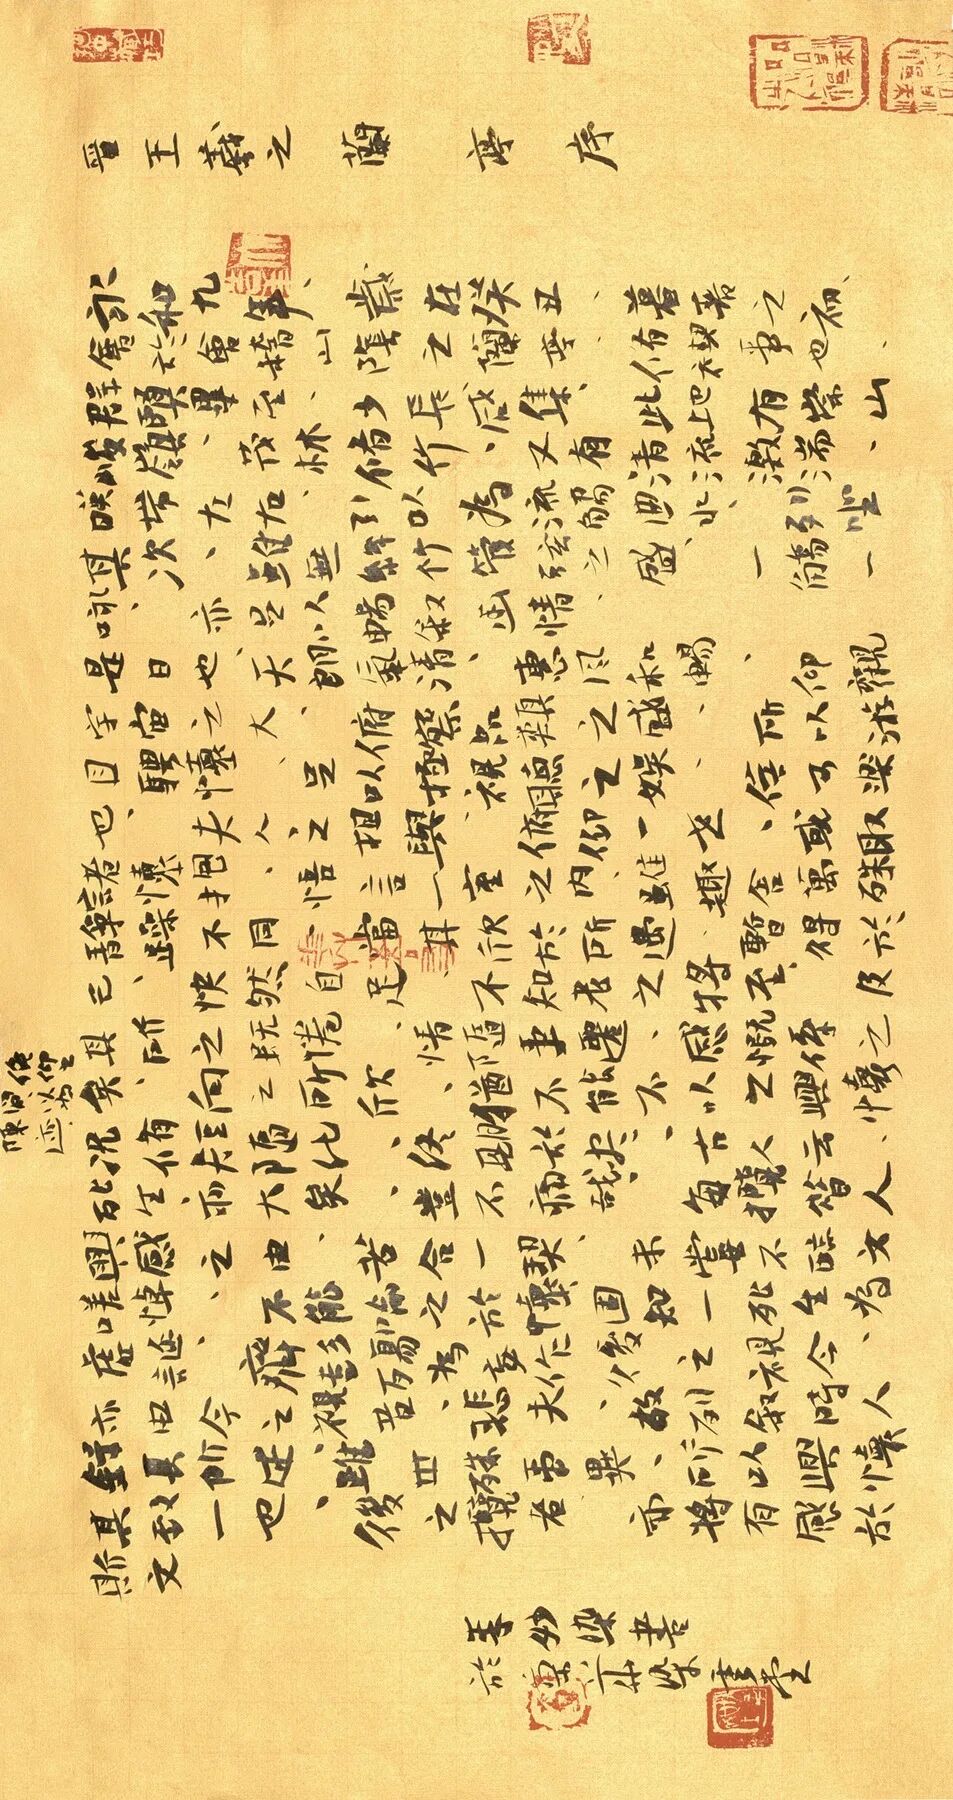 晉王羲之蘭亭序
永和九年歲在癸丑暮春之初
會於會稽山陰之蘭亭脩禊事也
羣賢畢至少長咸集此地有崇山
峻嶺茂林脩竹又有清流激湍
映帶左右引以為流觴曲水列坐
其次雖無絲竹管弦之盛一觴一
詠亦足以暢敘幽情
是日也天朗氣清惠風和暢仰觀
宇宙之大俯察品類之盛所以遊
目騁懷足以極視聽之娛信可樂
也夫人之相與俯仰一世或取
諸懷抱悟言一室之內或因寄所託
放浪形骸之外雖趣舍萬殊
靜躁不同當其欣於所遇暫得於
己快然自足不知老之將至及
其所之既惓情隨事遷感慨係之
矣向之所欣俛仰之間以為陳迹猶不能不以之興懷
況脩短隨化終期於盡古人云
死生亦大矣豈不痛哉每攬昔人
興感之由若合一契未嘗不臨文
嗟悼不能喻之於懷固知一死生為
虛誕齊彭殤為妄作後之視今
亦由今之視昔悲夫故列敘時人
錄其所述雖世殊事異所以興懷
其致一也後之攬者亦將有感於
斯文